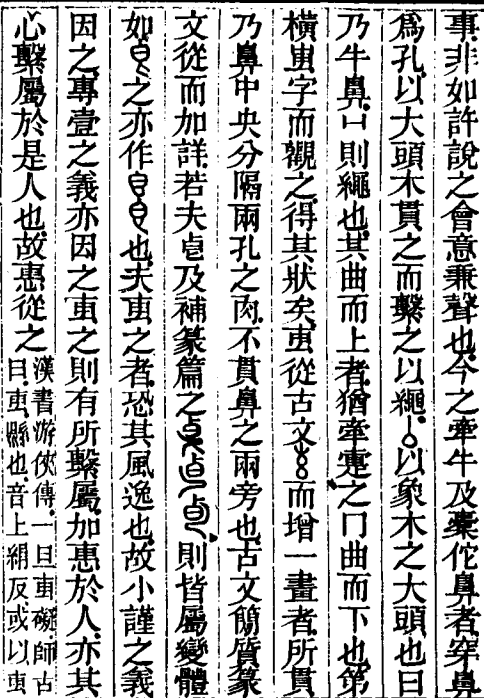 事非如許說之會意兼聲也今之牽牛及橐佗鼻者穿鼻
爲孔以大頭木貫之而繫之以繩以象木之大頭也曰
乃牛鼻則繩也其曲而上者猶牽之冂曲而下也第
橫叀字而觀之得其狀矣叀從古文而增一畫者所貫
乃鼻中央分隔兩孔之肉不貫鼻之兩旁也古文簡質篆
文從而加詳若夫及補篆篇之則皆屬變體
如之亦作也夫叀之者恐其風逸也故小謹之義
因之專壹之義亦因之叀之則有所繫屬加惠於人亦其
心繫屬於是人也故惠從之漢書游俠傳一旦叀礙師古
曰叀縣也音上絹反或以叀